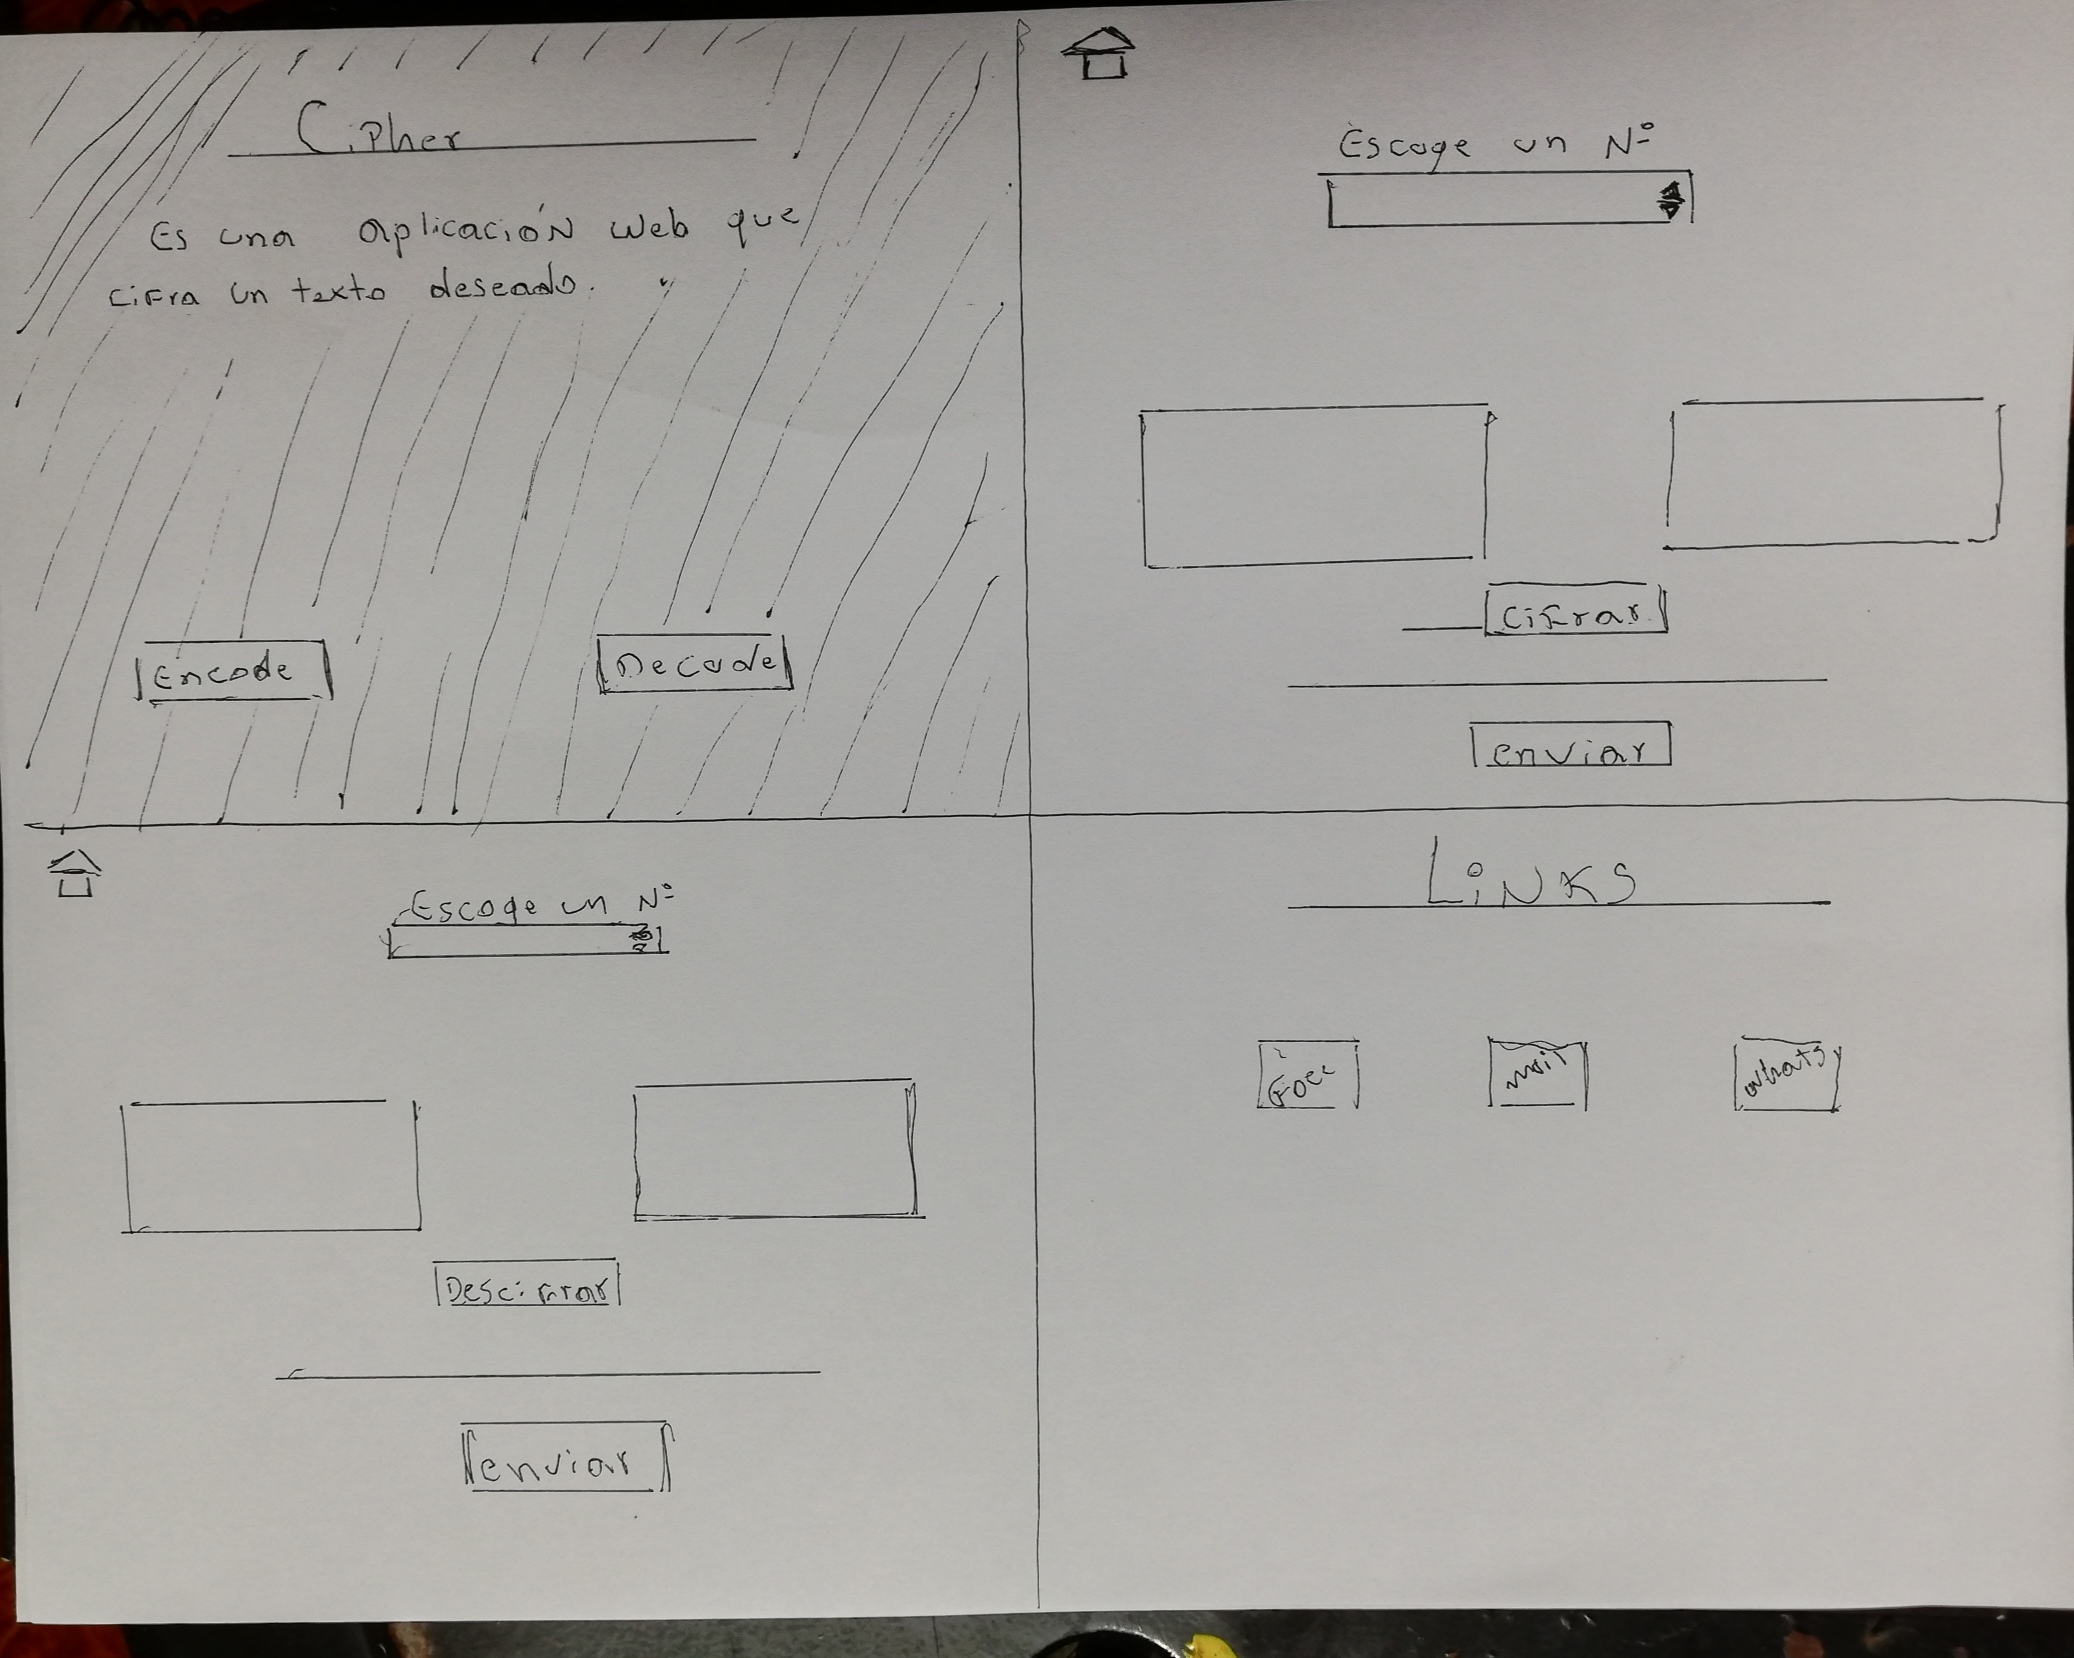 Cipher
Es una aplicación web que
cifra un texto deseado.
Encode
Decode
Escoge un Nº
Cifrar
enviar
Escoge un Nº
Descifrar
enviar
LiNKS
Face
mail
whats